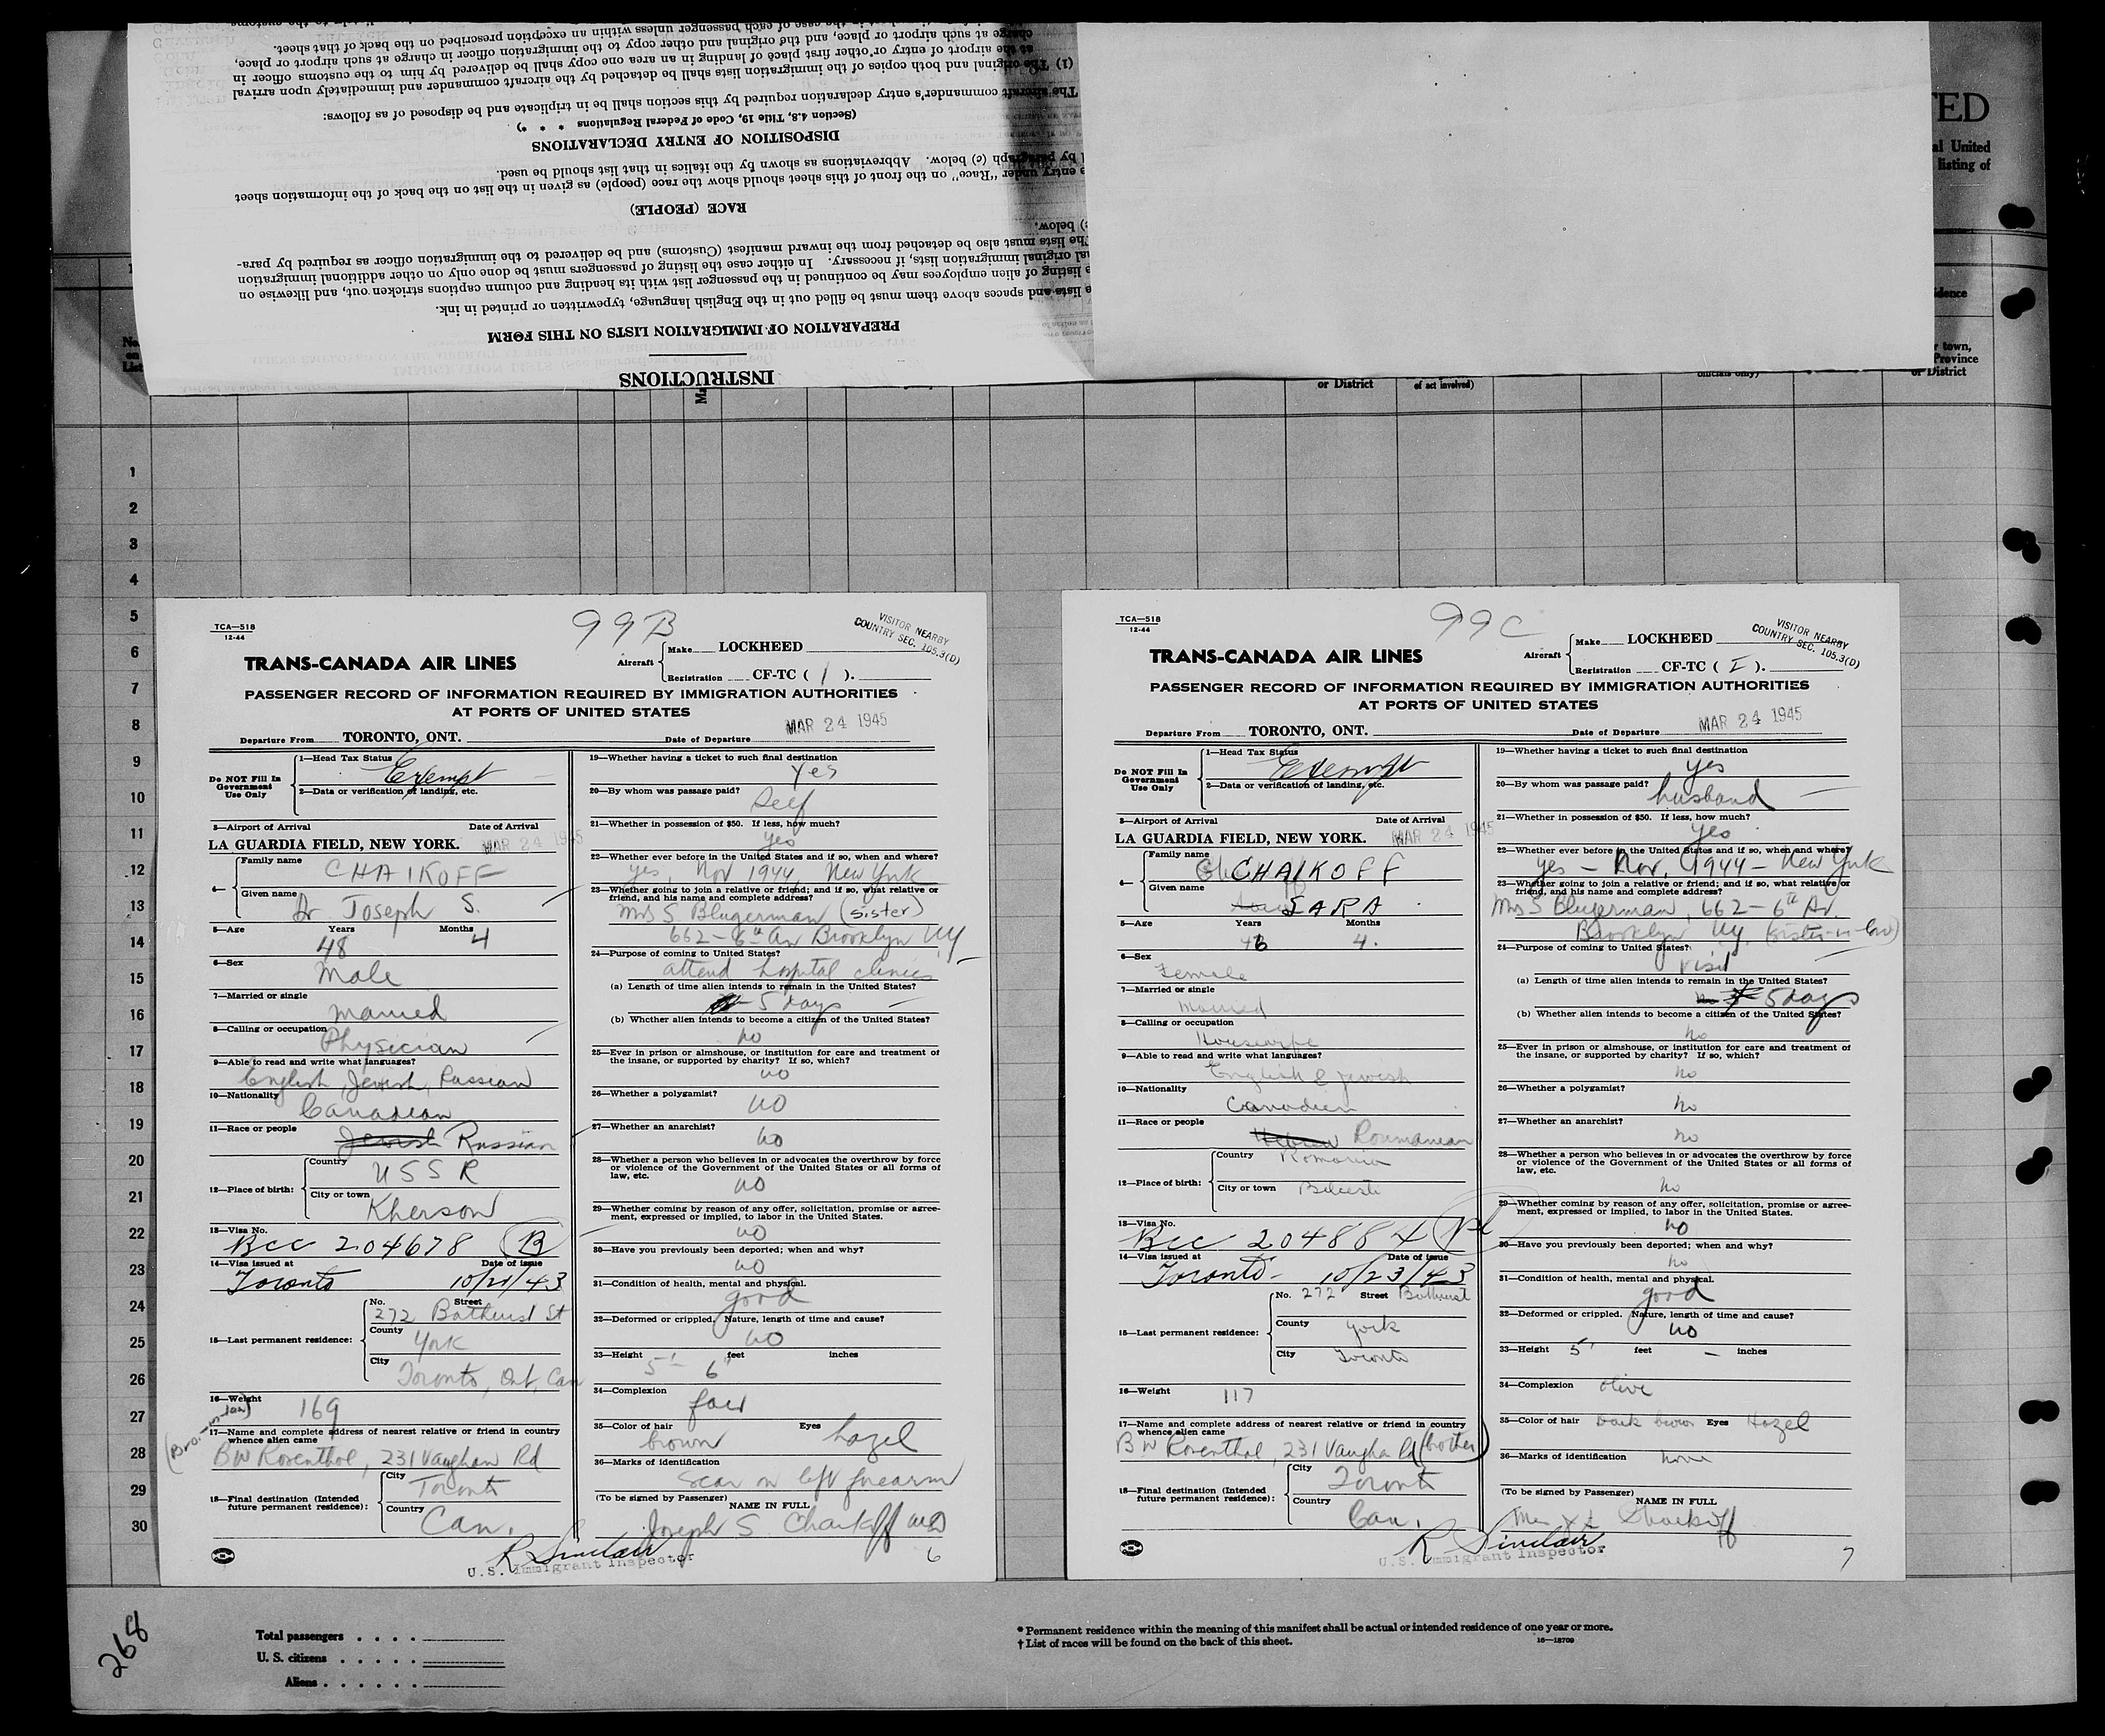 INSTRUCTIONS
PREPARATION OF IMMIGRATION LISTS ON THIS FORM
lists and spaces above them must be filled out in the English language, typewritten or printed in ink.
listing of alien employees may be continued in the passenger list with its heading and column captions stricken out, and likewise on
original immigration lists, if necessary. In either case the listing of passengers must be done only on other additional immigration
The lists must also be detached from the inward manifest (Customs) and be delivered to the immigration officer as required by para-
below.
RACE (PEOPLE)
entry under "Race" on the front of this sheet should show the race (people) as given in the list on the back of the information sheet
by paragraph (c) below. Abbreviations as shown by the italics in that list should be used.
DISPOSITION OF ENTRY DECLARATIONS
(Section 4.8, Title 19, Code of Federal Regulations * * *)
The aircraft commander's entry declaration required by this section shall be in triplicate and be disposed of as follows:
(1) The original and both copies of the immigration lists shall be detached by the aircraft commander and immediately upon arrival
at the airport of entry or other first place of landing in an area one copy shall be delivered by him to the customs officer in
charge at such airport or place, and the original and other copy to the immigration officer in charge at such airport or place,
in the case of each passenger unless within an exception prescribed on the back of that sheet.
TED
al United
listing of
No.
on
List
or District
of act involved)
officials only)
dence
r town,
Province
or District
1
2
3
4
5
6
7
8
9
10
11
12
13
14
15
16
17
18
19
20
21
22
23
24
25
26
27
28
29
30
TCA—518
12-44
99B
VISITOR NEARBY
COUNTRY SEC. 105.3(D)
TRANS-CANADA AIR LINES
Aircraft
Make LOCKHEED
Registration CF-TC ( 1 ).
PASSENGER RECORD OF INFORMATION REQUIRED BY IMMIGRATION AUTHORITIES
AT PORTS OF UNITED STATES
MAR 24 1945
Departure From TORONTO, ONT. Date of Departure
Do NOT Fill In Government Use Only
1—Head Tax Status
Exempt
2—Data or verification of landing, etc.
3—Airport of Arrival Date of Arrival
LA GUARDIA FIELD, NEW YORK. MAR 24 1945
4—
Family name CHAIKOFF
Given name Dr Joseph S.
5—Age Years Months
48 4
6—Sex
Male
7—Married or single
Married
8—Calling or occupation
Physician
9—Able to read and write what languages?
English, Jewish, Russian
10—Nationality
Canadian
11—Race or people
Jewish Russian
12—Place of birth:
Country
USSR
City or town
Kherson
13—Visa No.
BCC 204678 B
14—Visa issued at Date of issue
Toronto 10/21/43
15—Last permanent residence:
No. Street
272 Bathurst St
County
York
City
Toronto, Ont, Can
16—Weight 169
(Bro.-in-law)
17—Name and complete address of nearest relative or friend in country
whence alien came
BW Rosenthal, 231 Vaughan Rd
18—Final destination (Intended
future permanent residence):
City
Toronto
Country
Can.
19—Whether having a ticket to such final destination
Yes
20—By whom was passage paid?
Self
21—Whether in possession of $50. If less, how much?
Yes
22—Whether ever before in the United States and if so, when and where?
yes, Nov 1944, New York
23—Whether going to join a relative or friend; and if so, what relative or
friend, and his name and complete address?
Mrs S Blugerman (sister)
662—6th Av Brooklyn NY
24—Purpose of coming to United States?
attend hospital clinics
(a) Length of time alien intends to remain in the United States?
5 days
(b) Whether alien intends to become a citizen of the United States?
no
25—Ever in prison or almshouse, or institution for care and treatment of
the insane, or supported by charity? If so, which?
no
26—Whether a polygamist?
no
27—Whether an anarchist?
no
28—Whether a person who believes in or advocates the overthrow by force
or violence of the Government of the United States or all forms of
law, etc.
no
29—Whether coming by reason of any offer, solicitation, promise or agree-
ment, expressed or implied, to labor in the United States.
no
30—Have you previously been deported; when and why?
no
31—Condition of health, mental and physical.
good
32—Deformed or crippled. Nature, length of time and cause?
no
33—Height 5' feet 6" inches
34—Complexion
fair
35—Color of hair Eyes
brown hazel
36—Marks of identification
Scar on left forearm
(To be signed by Passenger) NAME IN FULL
Joseph S Chaikoff MD
R Sinclair
U.S. Immigrant Inspector
6
TCA—518
12-44
99C
VISITOR NEARBY
COUNTRY SEC. 105.3(D)
TRANS-CANADA AIR LINES
Aircraft
Make LOCKHEED
Registration CF-TC ( I ).
PASSENGER RECORD OF INFORMATION REQUIRED BY IMMIGRATION AUTHORITIES
AT PORTS OF UNITED STATES
MAR 24 1945
Departure From TORONTO, ONT. Date of Departure
Do NOT Fill In Government Use Only
1—Head Tax Status
Exempt
2—Data or verification of landing, etc.
3—Airport of Arrival Date of Arrival
LA GUARDIA FIELD, NEW YORK. MAR 24 1945
4—
Family name CHAIKOFF
Given name SARA
5—Age Years Months
46 4.
6—Sex
Female
7—Married or single
Married
8—Calling or occupation
Housewife
9—Able to read and write what languages?
English & Jewish
10—Nationality
Canadian
11—Race or people
Hebrew Roumanian
12—Place of birth:
Country
Romania
City or town
13—Visa No.
BCC 204884
14—Visa issued at Date of issue
Toronto - 10/23/43
15—Last permanent residence:
No. 272 Street Bathurst
County York
City Toronto
16—Weight 117
17—Name and complete address of nearest relative or friend in country
whence alien came
BW Rosenthal, 231 Vaughan Rd (brother)
18—Final destination (Intended
future permanent residence):
City
Toronto
Country
Can.
19—Whether having a ticket to such final destination
yes
20—By whom was passage paid?
husband
21—Whether in possession of $50. If less, how much?
yes
22—Whether ever before in the United States and if so, when and where?
yes — Nov. 1944 — New York
23—Whether going to join a relative or friend; and if so, what relative or
friend, and his name and complete address?
Mrs S Blugerman, 662—6th Av.
Brooklyn NY, (sister-in-law)
24—Purpose of coming to United States?
visit
(a) Length of time alien intends to remain in the United States?
5 days
(b) Whether alien intends to become a citizen of the United States?
no
25—Ever in prison or almshouse, or institution for care and treatment of
the insane, or supported by charity? If so, which?
no
26—Whether a polygamist?
no
27—Whether an anarchist?
no
28—Whether a person who believes in or advocates the overthrow by force
or violence of the Government of the United States or all forms of
law, etc.
no
29—Whether coming by reason of any offer, solicitation, promise or agree-
ment, expressed or implied, to labor in the United States.
no
30—Have you previously been deported; when and why?
no
31—Condition of health, mental and physical.
good
32—Deformed or crippled. Nature, length of time and cause?
no
33—Height 5' feet — inches
34—Complexion olive
35—Color of hair Dark brown Eyes Hazel
36—Marks of identification none
(To be signed by Passenger) NAME IN FULL
R Sinclair
U.S. Immigrant Inspector
7
268
Total passengers . . . .
U. S. citizens . . . . .
Aliens . . . . . .
* Permanent residence within the meaning of this manifest shall be actual or intended residence of one year or more.
† List of races will be found on the back of this sheet.
16—18709